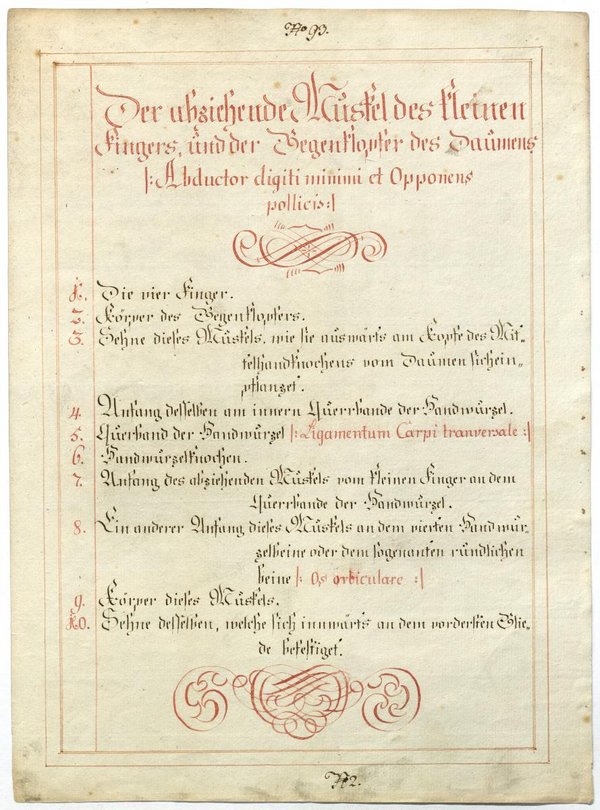 No 93.
Der abziehende Muskel des kleinen
Fingers, und der Gegenklopfer des Daumens
|: Abductor digiti minimi et Opponens
pollicis :|
1. Die vier Finger.
2. Körper des Gegenklopfers.
3. Sehne dieses Muskels, wie sie auswärts am Kopfe des Mit=
telhandknochens vom Daumen sich ein=
pflanzet.
4. Anfang desselben am innern Querrbande der Handwurzel.
5. Querband der Handwurzel |: Ligamentum Carpi tranversale :|
6. Handwurzelknochen.
7. Anfang des abziehenden Muskels vom kleinen Finger an dem
Querrbande der Handwurzel.
8. Ein anderer Anfang dieses Muskels an dem vierten Handwur=
zelbeine oder dem sogenanten rundlichen
beine |: Os orbiculare :|
9. Körper dieses Muskels.
10. Sehne desselben, welche sich innwärts an dem vordersten Glie=
de befestiget.